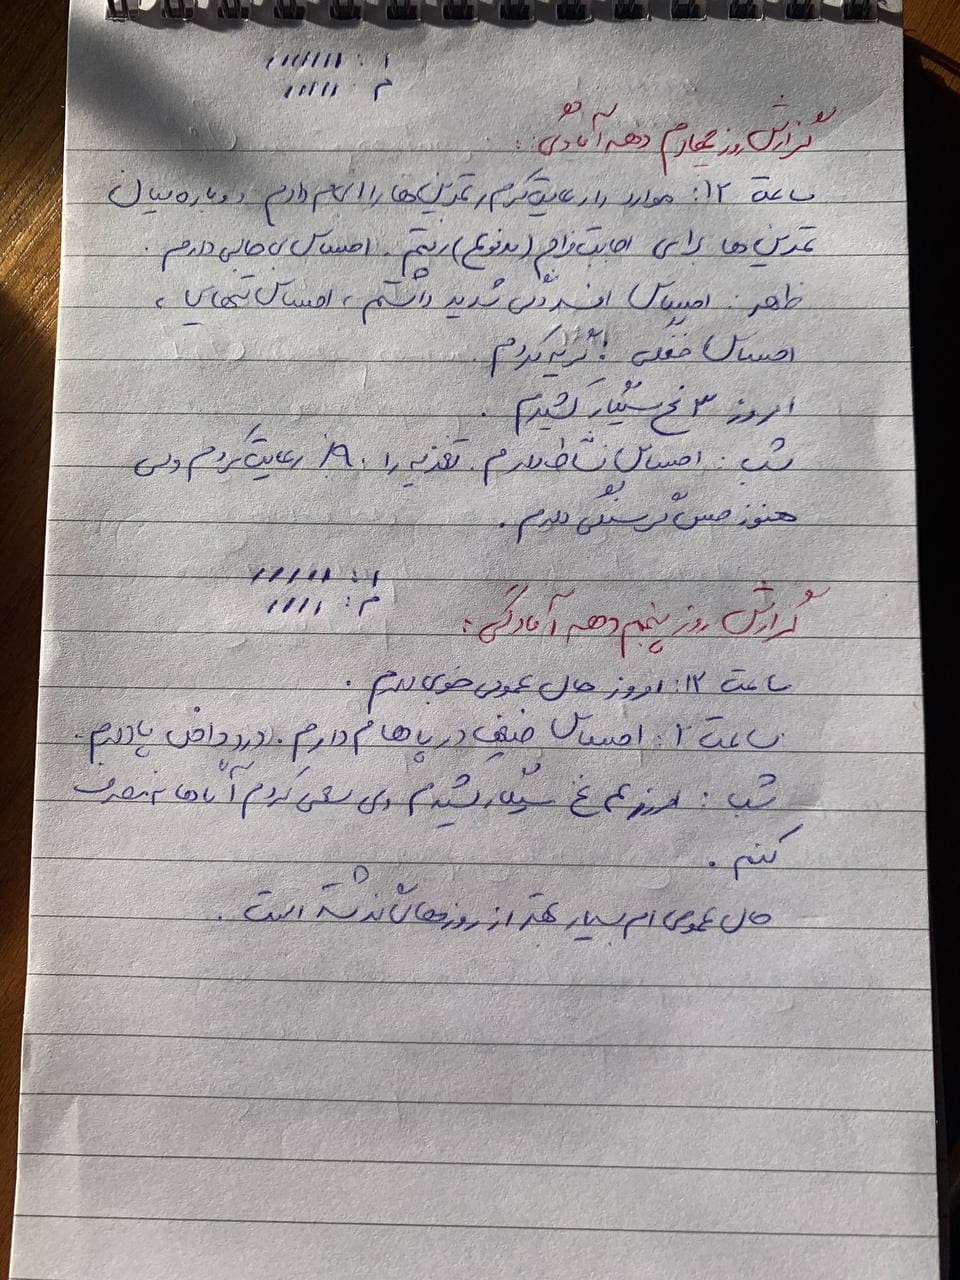 ا : ااااااا
م : ااااا
گزارش روز چهارم دهه آمادگی :
ساعت ۱۲: موارد را رعایت کردم، تمرین‌ها را انجام دادم دوباره میان
تمرین ها برای اجابت مزاج (مدفوع) رفتم. احساس بی حالی دارم.
ظهر : احساس افسردگی شدید داشتم، احساس تنهایی،
احساس خفگی! گریه کردم.
امروز ۳ نخ سیگار کشیدم.
شب : احساس نشاط دارم. تغذیه را ۹۰٪ رعایت کردم ولی
هنوز حس گرسنگی دارم.
ا : اااااا
م : اااا
گزارش روز پنجم دهه آمادگی :
ساعت ۱۲: امروز حال عمومی خوبی دارم.
ساعت ۲: احساس ضعف در پاهام دارم. درد داخل پا دارم.
شب : امروز هم نخ سیگار کشیدم ولی سعی کردم آنها مصرف
کنم.
حال عمومی ام بسیار بهتر از روزهای گذشته است.